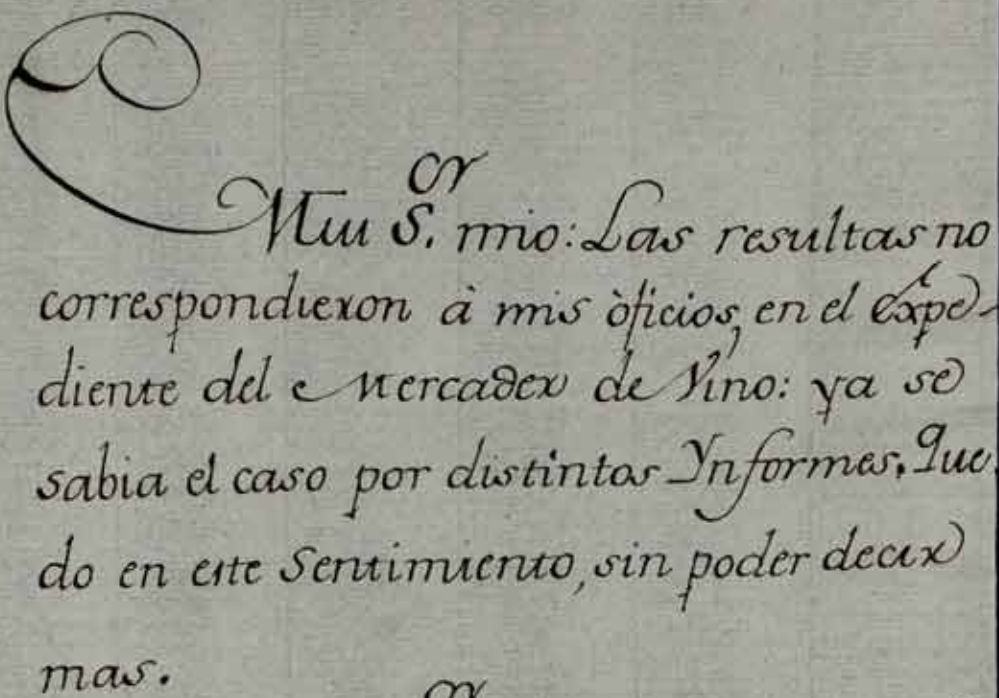 Mui S.or mio: Las resultas no
correspondieron à mis òficios, en el expe-
diente del Mercader de Vino: ya se
sabia el caso por distintos Ynformes. Que
do en este Sentimiento, sin poder decir
mas.